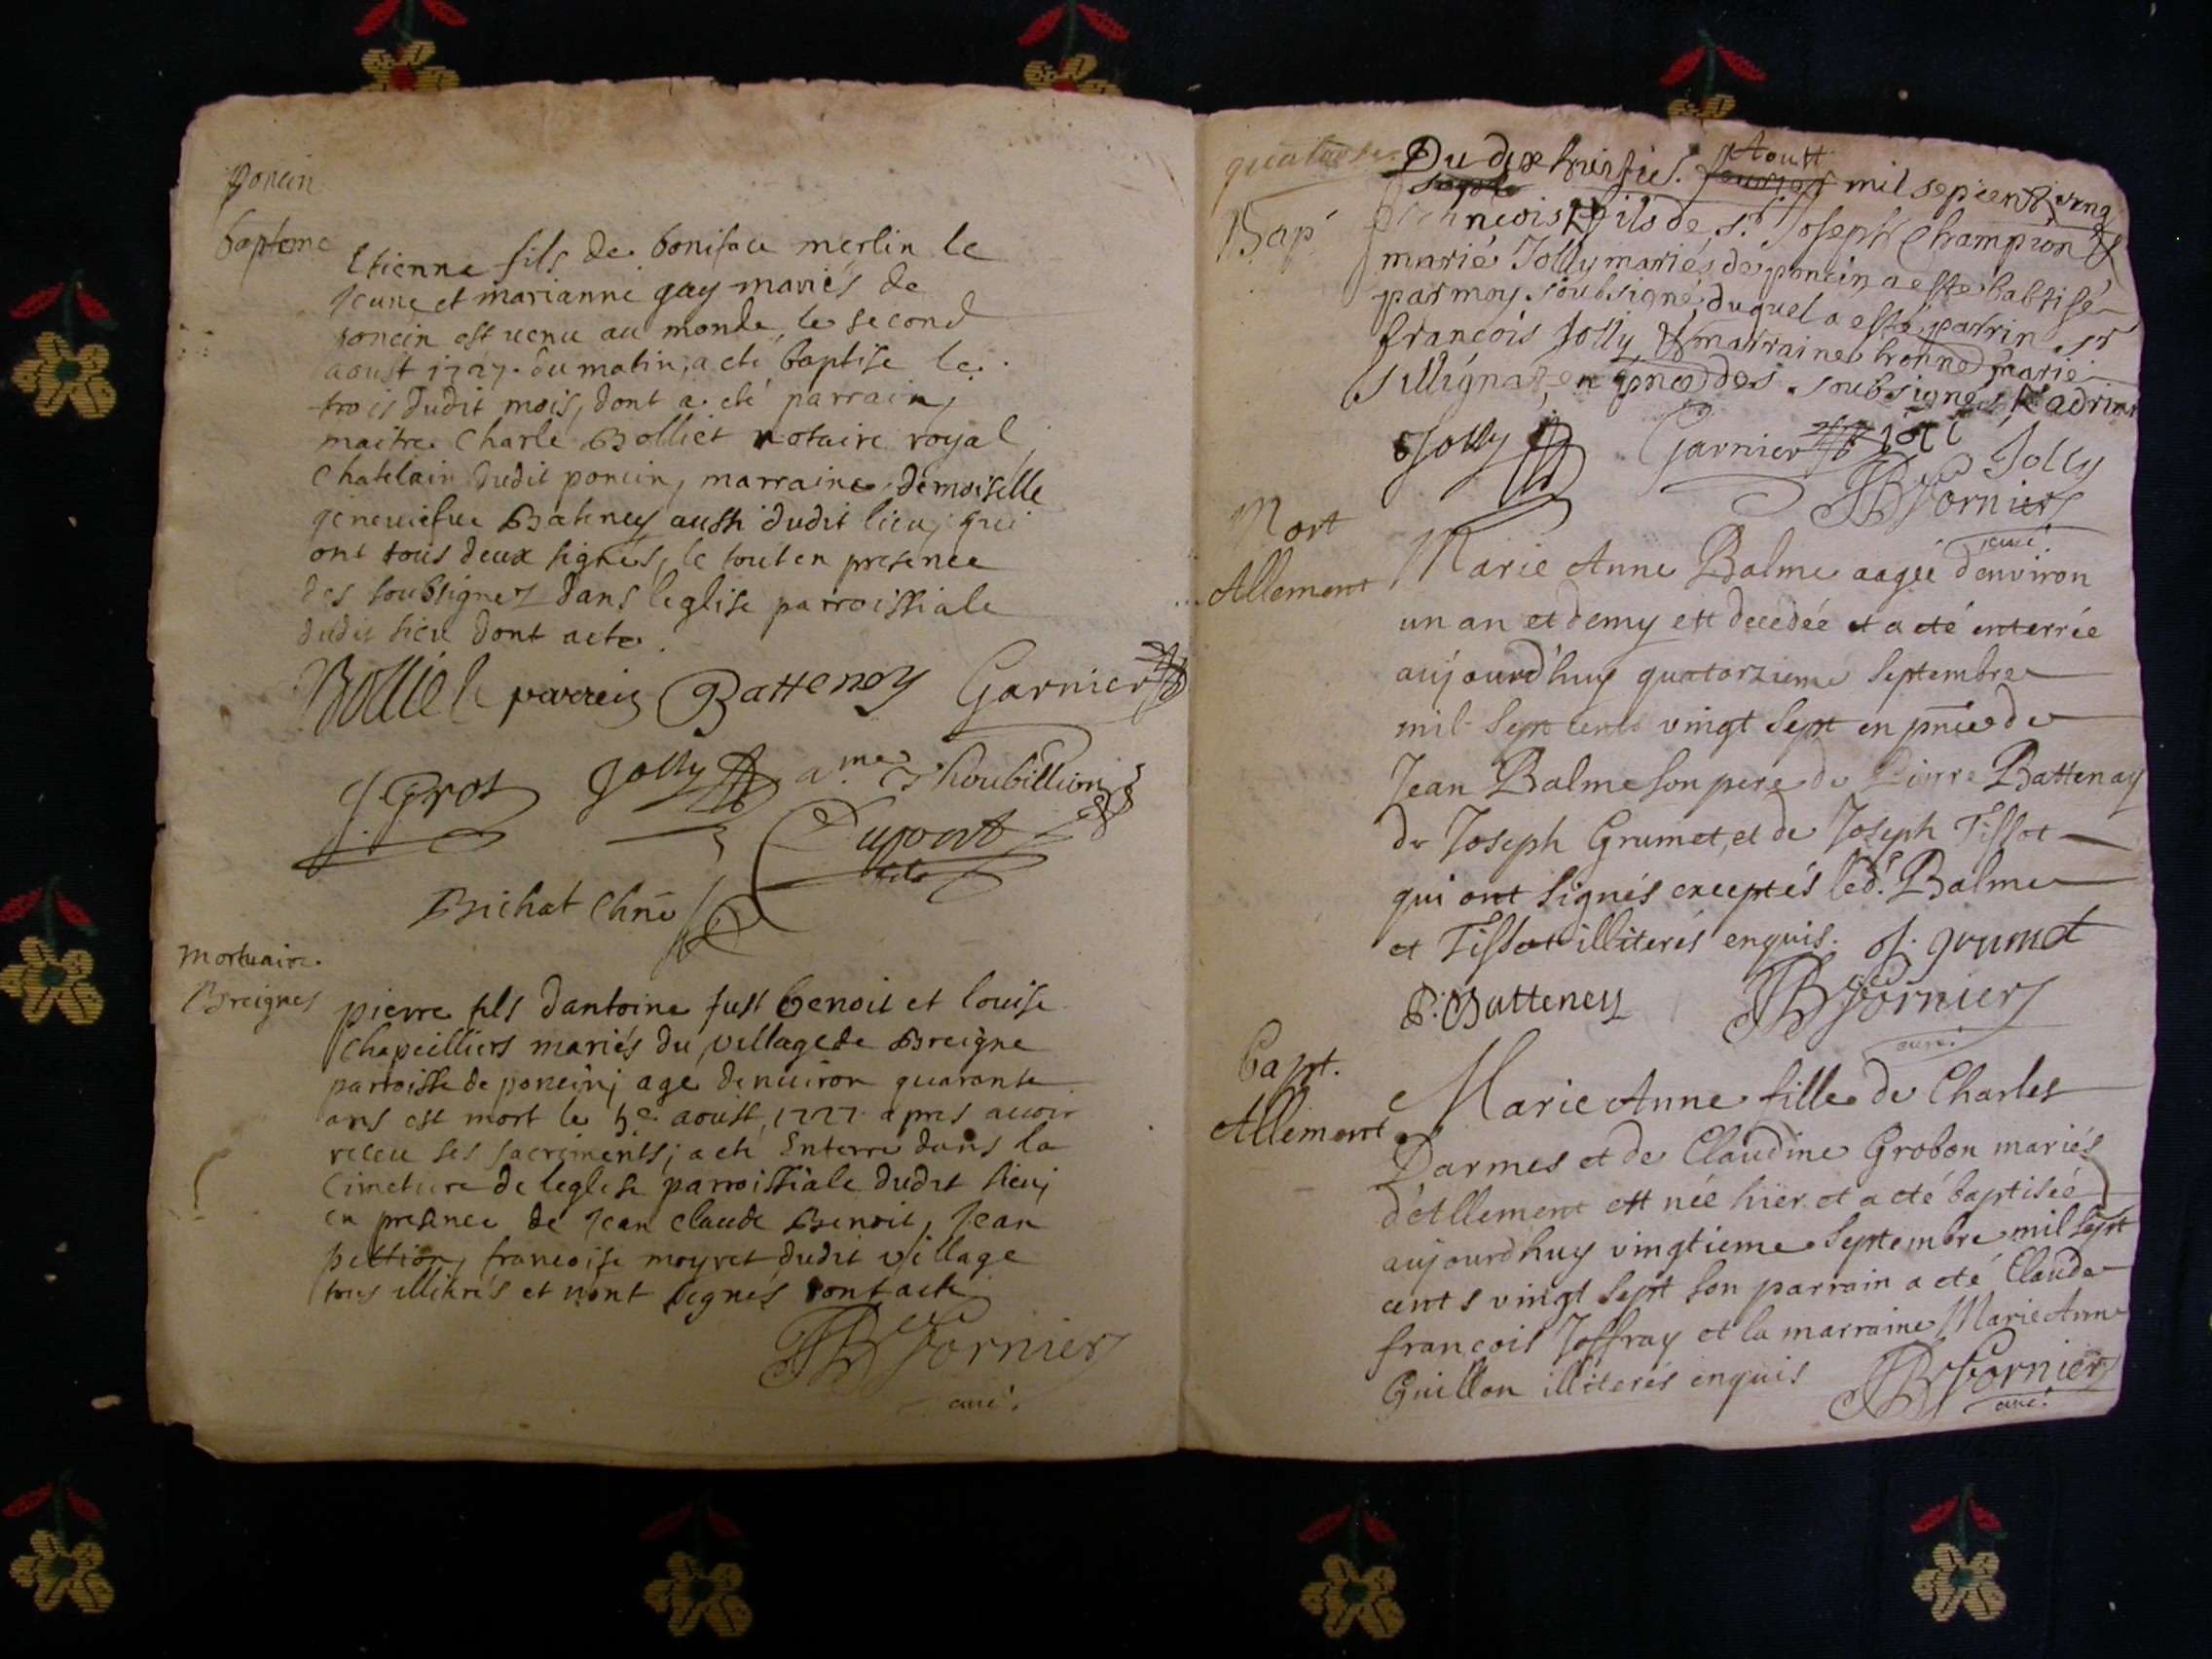 poncin
bapteme
Etienne fils de boniface merlin le
jeune et marianne gay mariés de
poncin est venu au monde le second
aoust 1727. du matin, a eté baptise le
trois dudit mois, dont a eté parrain,
maitre Charle Bolliet notaire royal
Chatelain dudit poncin, marraine demoiselle
geneviefve Bateney aussi dudit lieu, qui
ont tous deux signés, le tout en presence
des soubsignez dans leglise parroissiale
dudit lieu dont acte.
Bolliet parrein Batteney Garnier
J. Grot Jolly a.me Thoubillion
Dupont
fils
Bichat Chne
Mortuaire.
Breignes
pierre fils dantoine just benoit et louise
Chapeilliers mariés du village de Breigne
parroisse de poncin, age denuiron quarante
ans est mort le 5e aoust, 1727 apres auoir
receu ses sacrements; a eté Enterré dans la
Cimetiere de leglise parroissiale dudit lieu,
en presence de jean claude Benoit, jean
pettion, francoise moyret dudit village
tous illitérés et n'ont signés dont acte
JB Fornier
curé.
quatorze.
Du dix huistie. Aoust mil sept cent ving
sept
Bap.
francois fils de sr. Joseph Champion &
marié Jolly mariés de poncin a este babtisé
par moy soubsigné, duquel a esté parrin sr
francois Jolly & marraine honne marie
Sillignat, en pnce des soubsignés,
Jolly Garnier
Jolly
JB Fornier
curé.
Mort
Allement
Marie Anne Balme aagée d'environ
un an et demy est decedée et a eté enterrée
aujourd'huy quatorzieme Septembre
mil Sept cents vingt Sept en pnce de
Jean Balme son pere de Pierre Battenay
de Joseph Grumet, et de Joseph Tissot
qui ont signés exceptés led. Balme
et Tissot illiterés enquis. J. grumet
P. Batteney JB Fornier
curé.
Bapt.
Allement
Marie Anne fille de Charles
Darmes et de Claudine Grobon mariés
d'Allement est née hier et a eté baptisée
aujourdhuy vingtieme Septembre mil Sept
cents vingt Sept son parrain a eté Claude
françois Joffray et la marraine Marie Anne
Guillon illiterés enquis JB Fornier
curé.